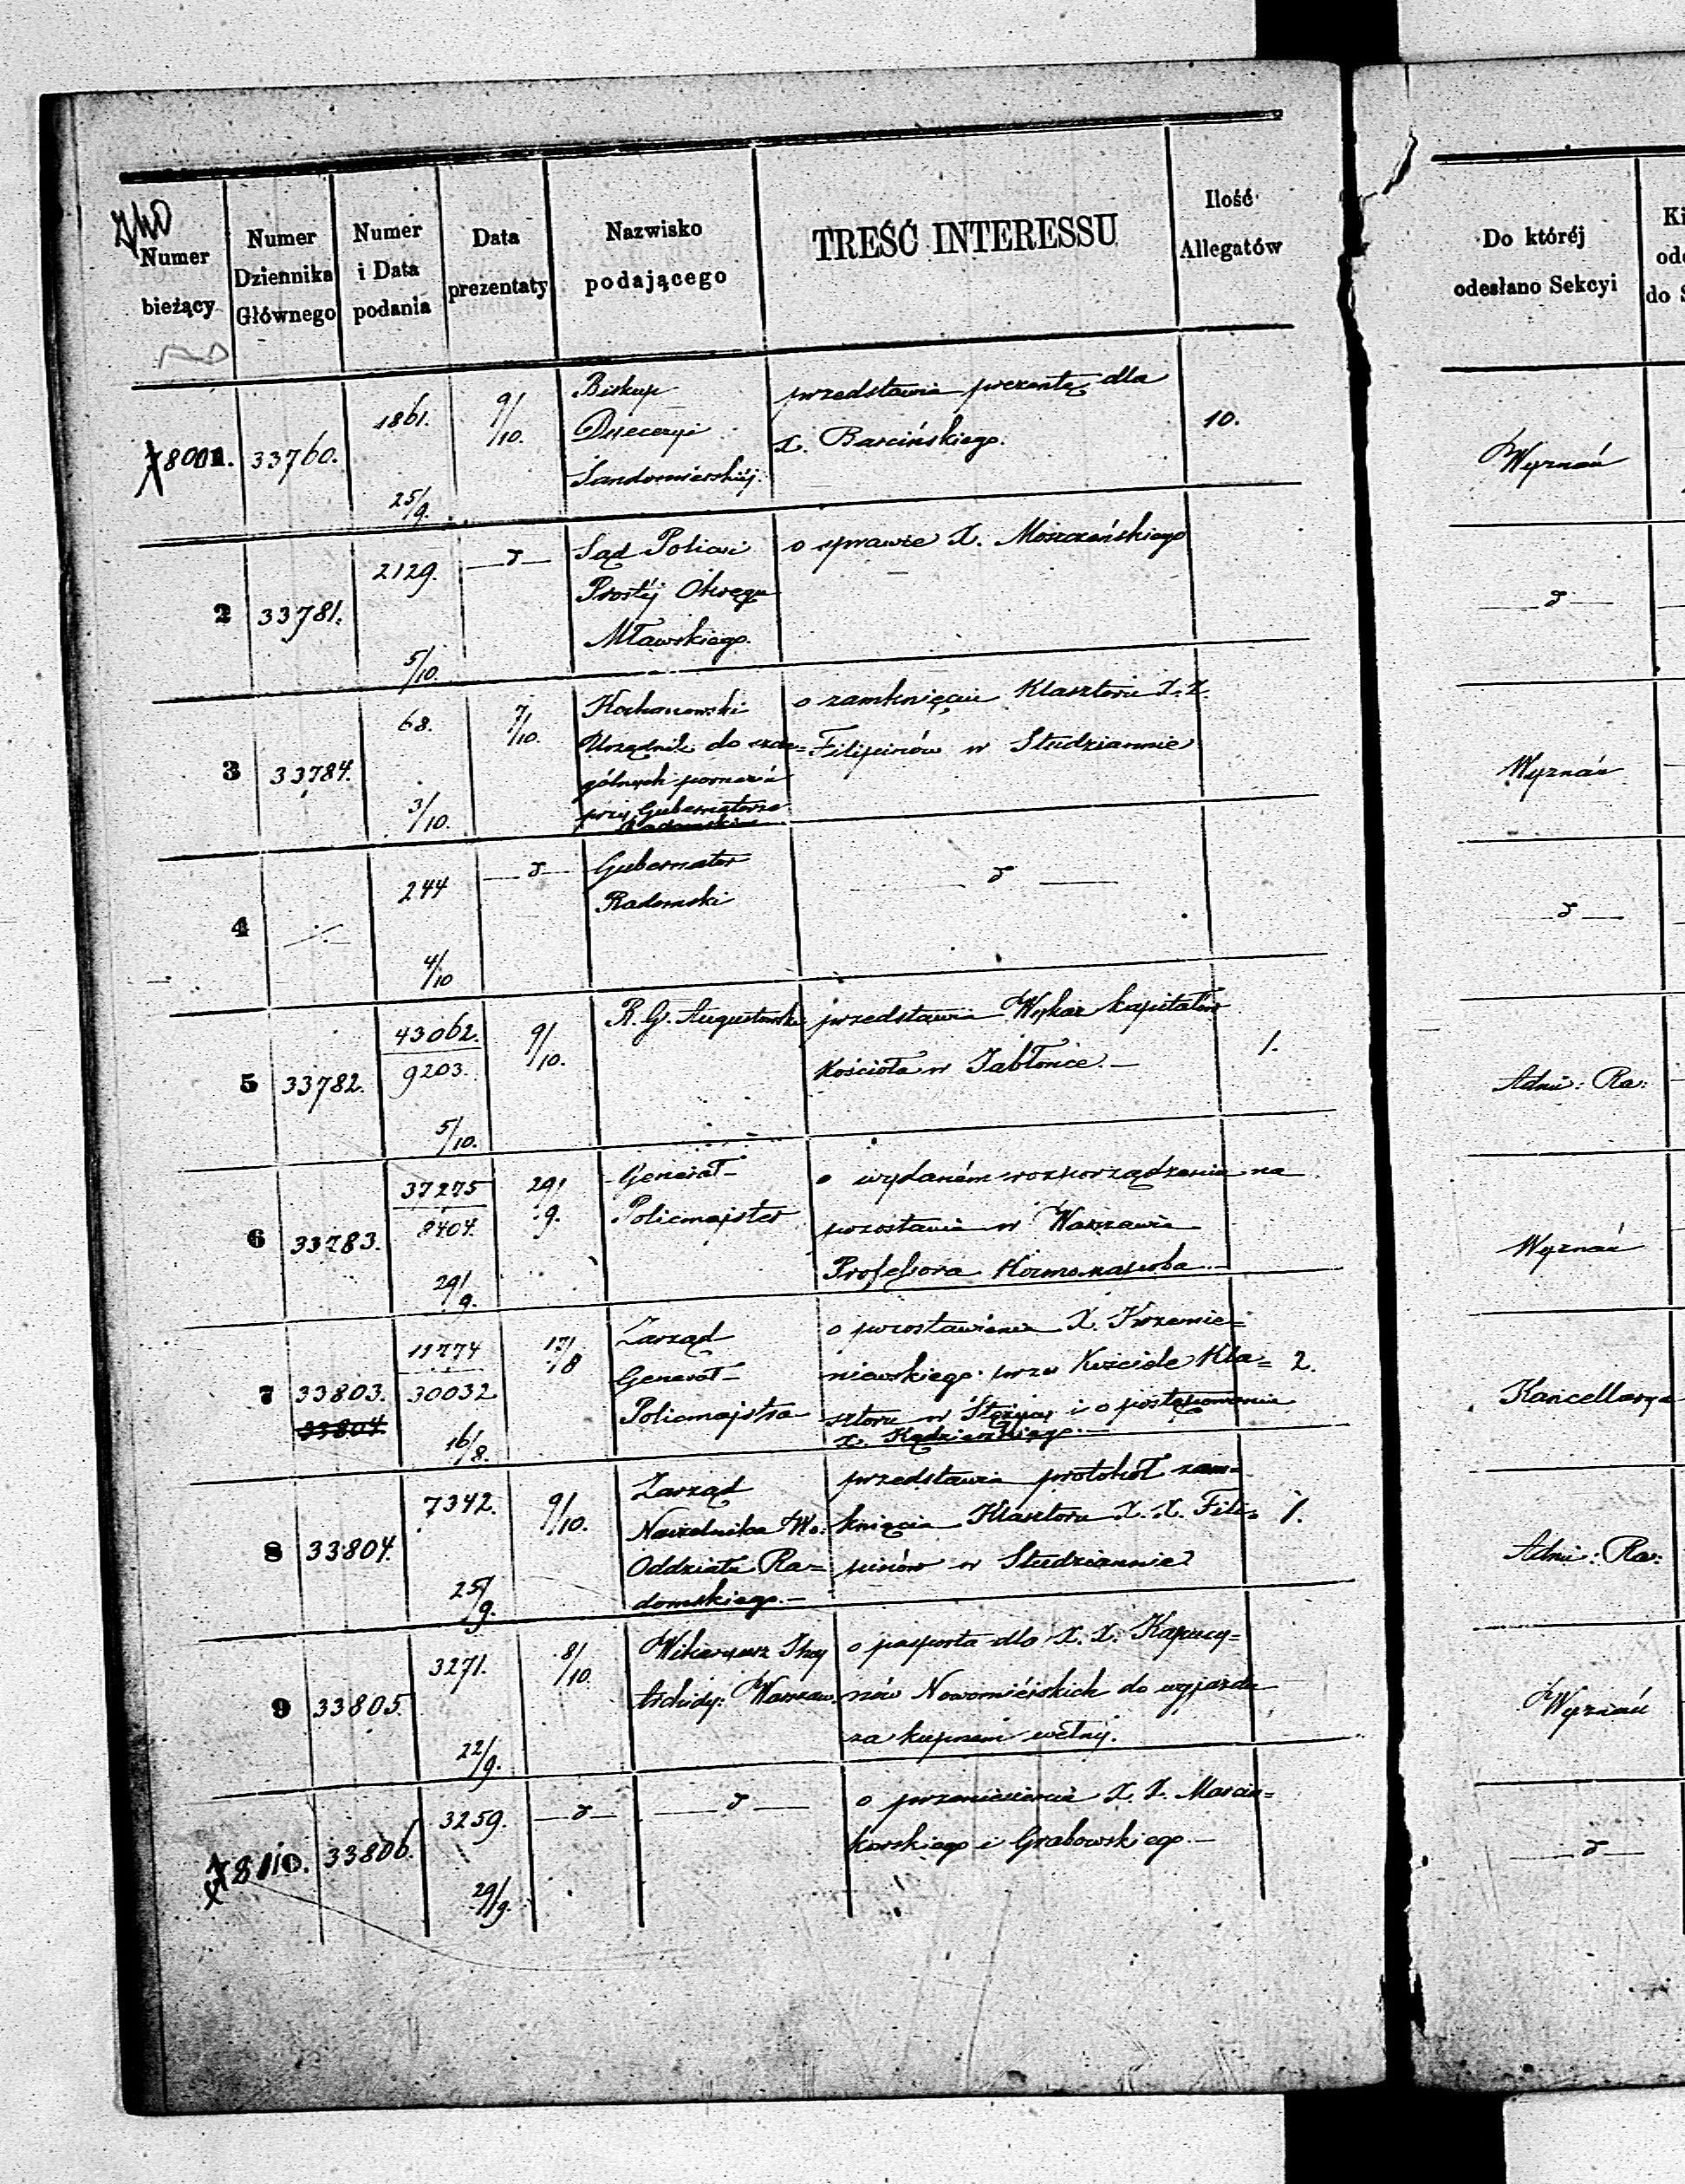 Numer bieżący
Numer Dziennika Głównego
Numer i Data podania
Data prezentaty
Nazwisko podającego
TREŚĆ INTERESSU
Ilość Allegatów
Do któréj odesłano Sekcyi
33760.
1861.
25/9.
9/10.
Biskup
Dyecezyi
Sandomierskiéj.
przedstawia prezentę dla
X. Barcińskiego.
10.
Wyznań
2
33781.
2129.
5/10.
—d—
Sąd Policii
Prostéj Okręgu
Mławskiego.
o sprawie X. Moszczeńskiego
—d—
3
33784.
68.
3/10.
7/10.
Kochanowski
Urzędnik do szcze=
gólnych poruczeń
przy Gubernatorze
Radomskim
o zamknięciu Klasztoru X.X.
Filipinów w Studziannie
Wyznań
4
244
4/10
—d—
Gubernator
Radomski
—d—
—d—
5
33782.
43062.
9203.
5/10.
9/10.
R. G. Augustowski
przedstawia Wykaz kapitałów
Kościoła w Jabłonce.—
1.
Adm: Ra:
6
33783.
37275
8404.
29/9.
29/9.
Generał-
Policmajster
o wydaném rozporządzeniu na
pozostanie w Warszawie
Professora
Wyznań
7
33803.
33804
11774
30032
16/8.
17/8
Zarząd
Generał-
Policmajstra
o pozostawienie X. Krzemie=
niewskiego przy Kościele Kla=
sztoru w Stężycy i o postępowaniu
X.
2.
Kancellarya
8
33804.
7342.
25/9.
9/10.
Zarząd
Naczelnika Wo:
Oddziału Ra=
domskiego.—
przedstawia protokół zam=
knięcia Klasztoru X. X. Fili=
pinów w Studziannie
1.
Adm: Ra:
9
33805.
3271.
22/9.
8/10.
Wikaryusz
Archidy: Warszaw.
o pasporta dla X. X. Kapucy=
nów Nowomiéjskich do wyjazdu
za kupnem wełny.
Wyznań
7810.
33806.
3259.
29/9.
—d—
—d—
o przeniesienie X. X. Marcin=
kowskiego i Grabowskiego.—
—d—